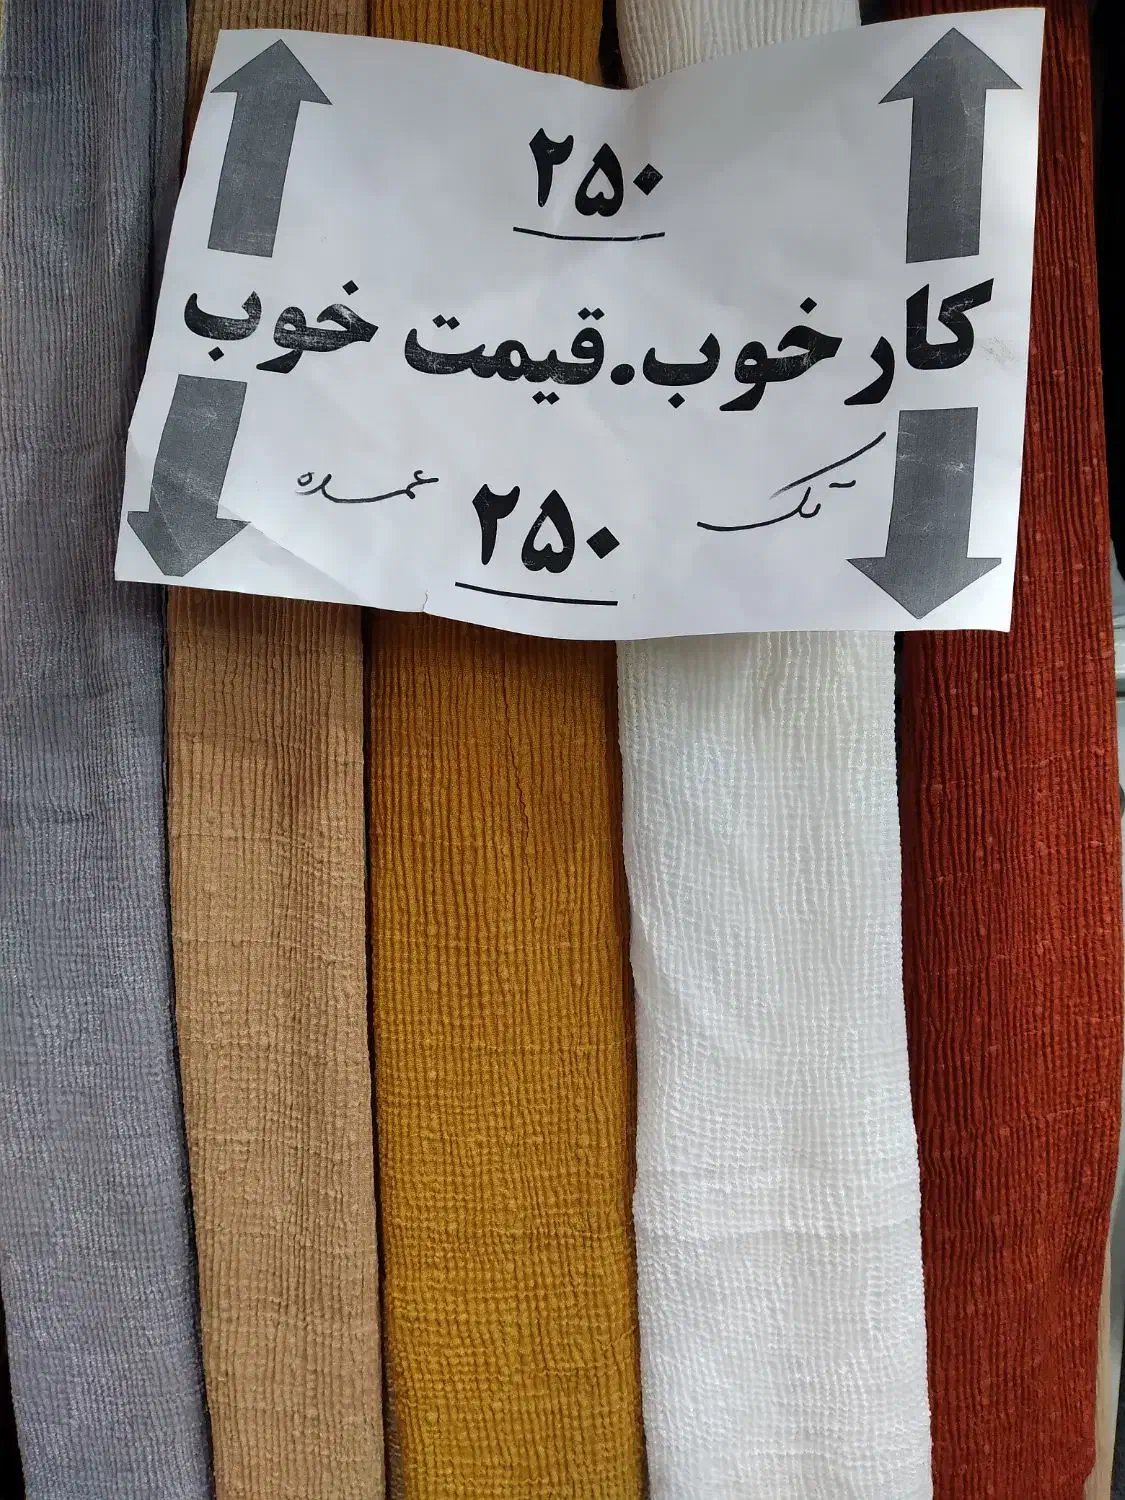 ۲۵۰
کار خوب.قیمت خوب
تک ۲۵۰ عمده